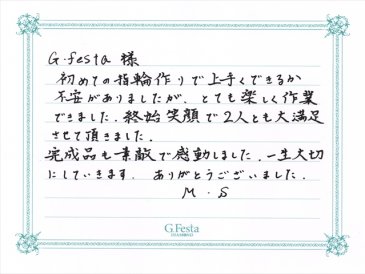 G.festa 様
初めての指輪作りで上手くできるか
不安がありましたが、とても楽しく作業
できました。終始笑顔で2人とも大満足
させて頂きました。
完成品も素敵で感動しました。一生大切
にしていきます。ありがとうございました。
M・S
G.Festa
DIAMOND